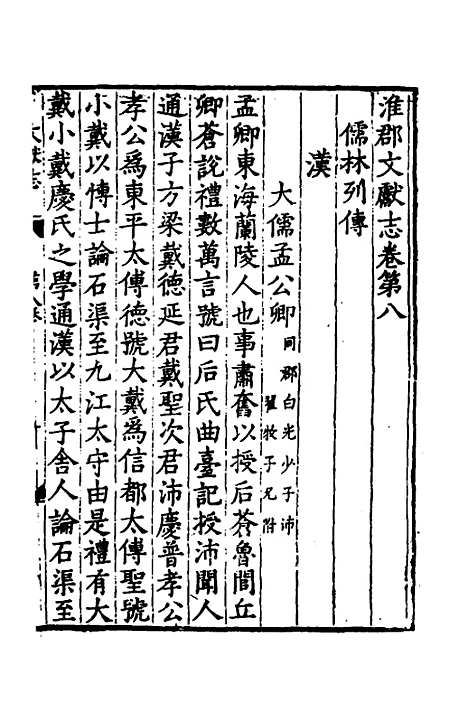 淮郡文獻志卷第八
儒林列傳
漢
大儒孟公卿同郡白光少子沛
翟牧子兄附
孟卿東海蘭陵人也事肅奮以授后蒼魯閭丘
卿蒼說禮數萬言號曰后氏曲臺記授沛聞人
通漢子方梁戴德延君戴聖次君沛慶普孝公
孝公爲東平太傅德號大戴爲信都太傅聖號
小戴以愽士論石渠至九江太守由是禮有大
戴小戴慶氏之學通漢以太子舍人論石渠至